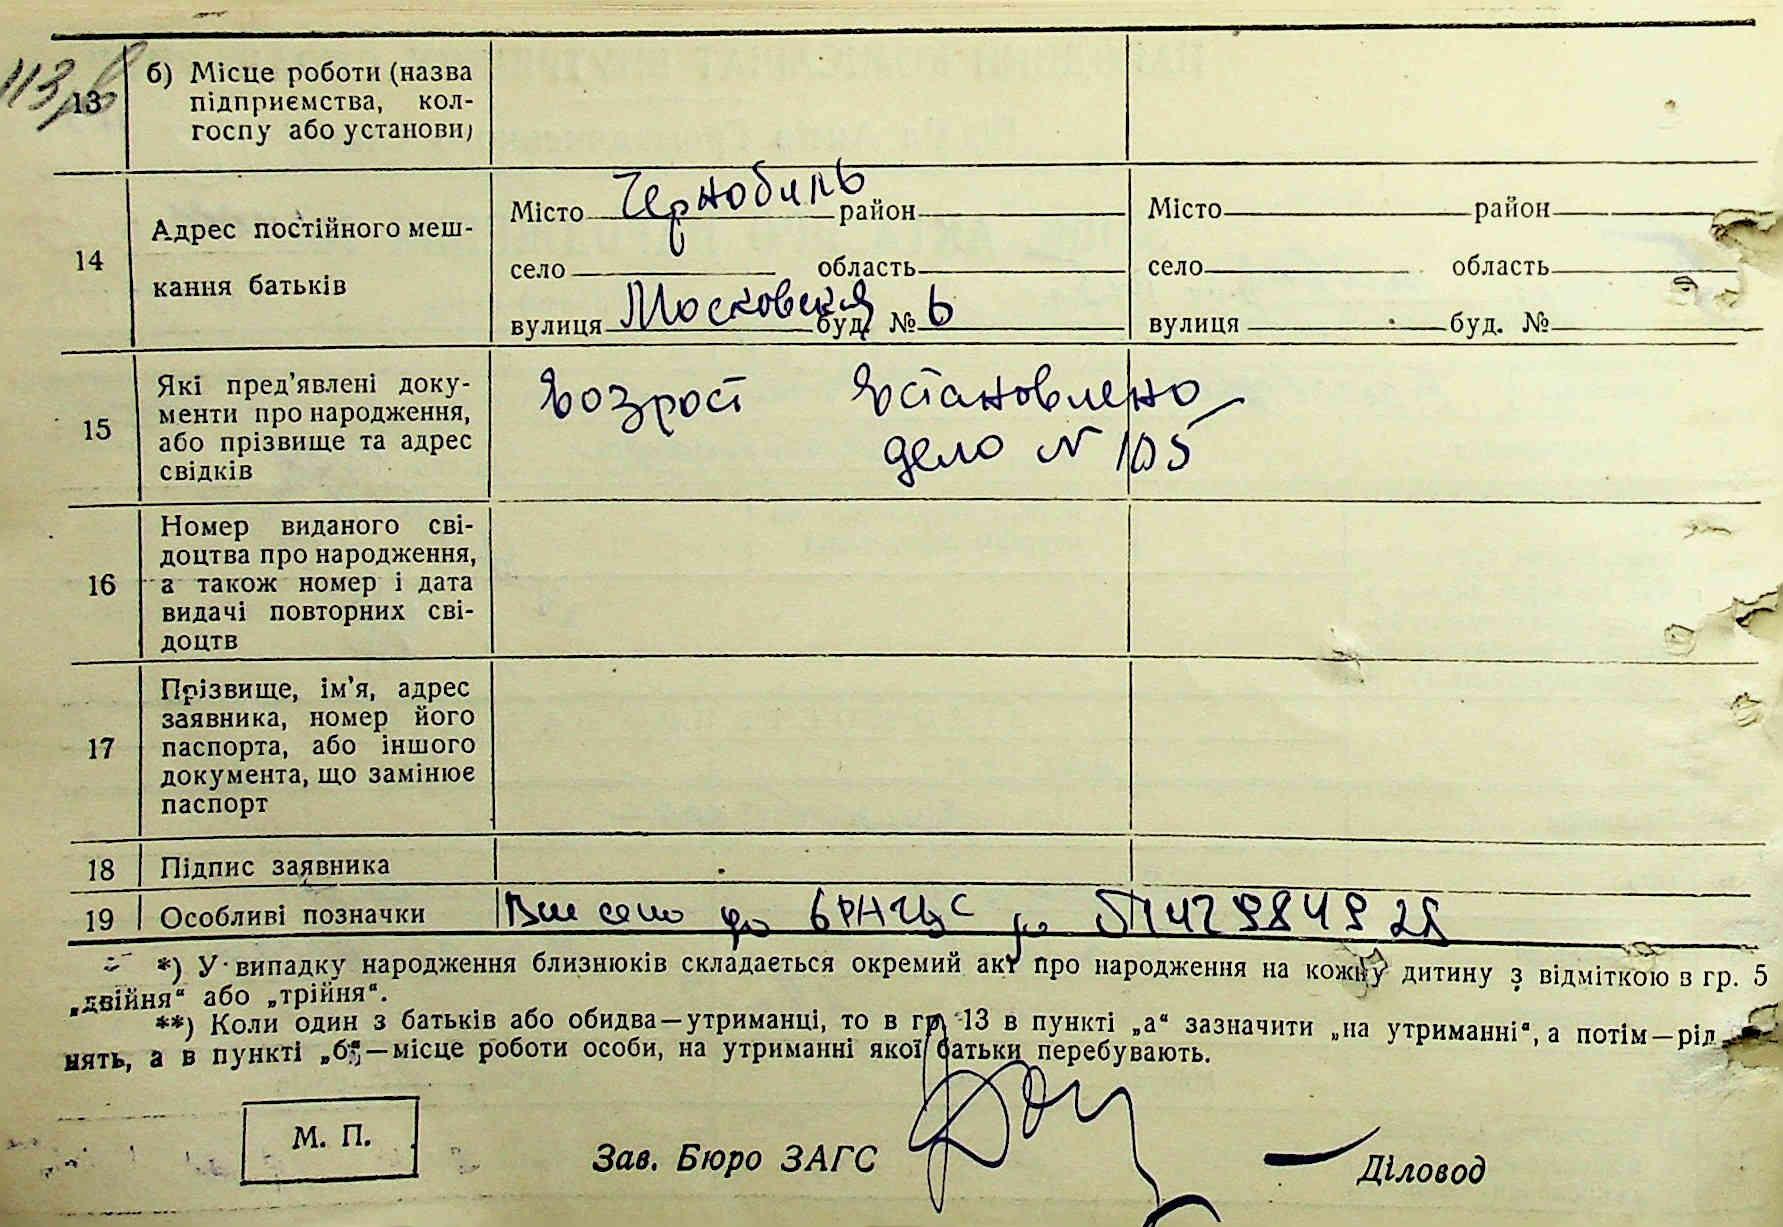 113 зв
13
б) Місце роботи (назва
підприємства, кол-
госпу або установи)
14
Адрес постійного меш-
кання батьків
Місто Чернобиль район
село область
вулиця Московская буд. № 6
Місто район
село область
вулиця буд. №
15
Які пред’явлені доку-
менти про народження,
або прізвище та адрес
свідків
Возрост Встановлено
дело N 105
16
Номер виданого сві-
доцтва про народження,
а також номер і дата
видачі повторних сві-
доцтв
17
Прізвище, ім’я, адрес
заявника, номер його
паспорта, або іншого
документа, що замінює
паспорт
18 Підпис заявника
19 Особливі позначки Внесено до
*) У випадку народження близнюків складається окремий акт про народження на кожну дитину з відміткою в гр. 5
„двійня“ або „трійня“.
**) Коли один з батьків або обидва—утриманці, то в гр. 13 в пункті „а“ зазначити „на утриманні“, а потім—рід
нять, а в пункті „б“—місце роботи особи, на утриманні якої батьки перебувають.
М. П.
Зав. Бюро ЗАГС
Діловод